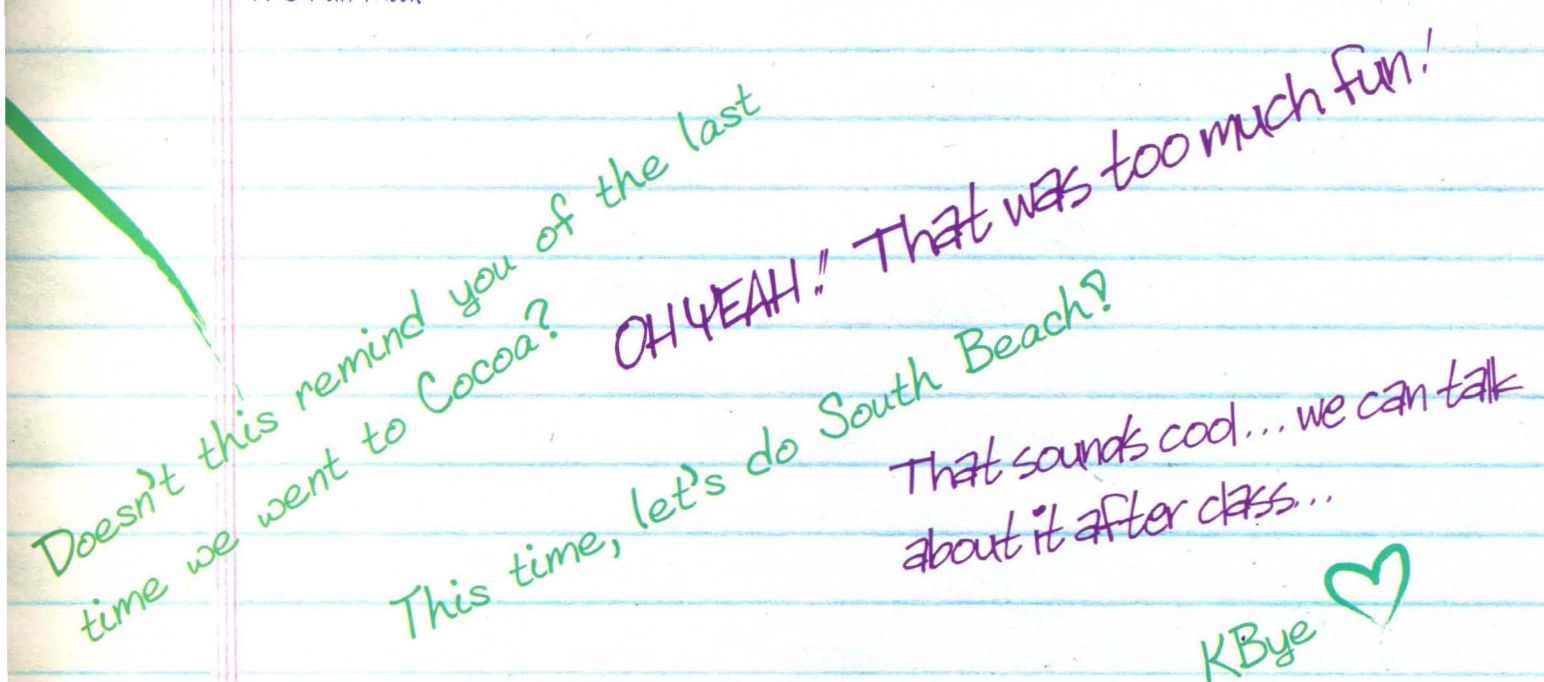 Doesn't this remind you of the last
time we went to Cocoa?
OH YEAH!! That was too much fun!
This time, let's do South Beach?
That sounds cool... we can talk
about it after class...
KBye